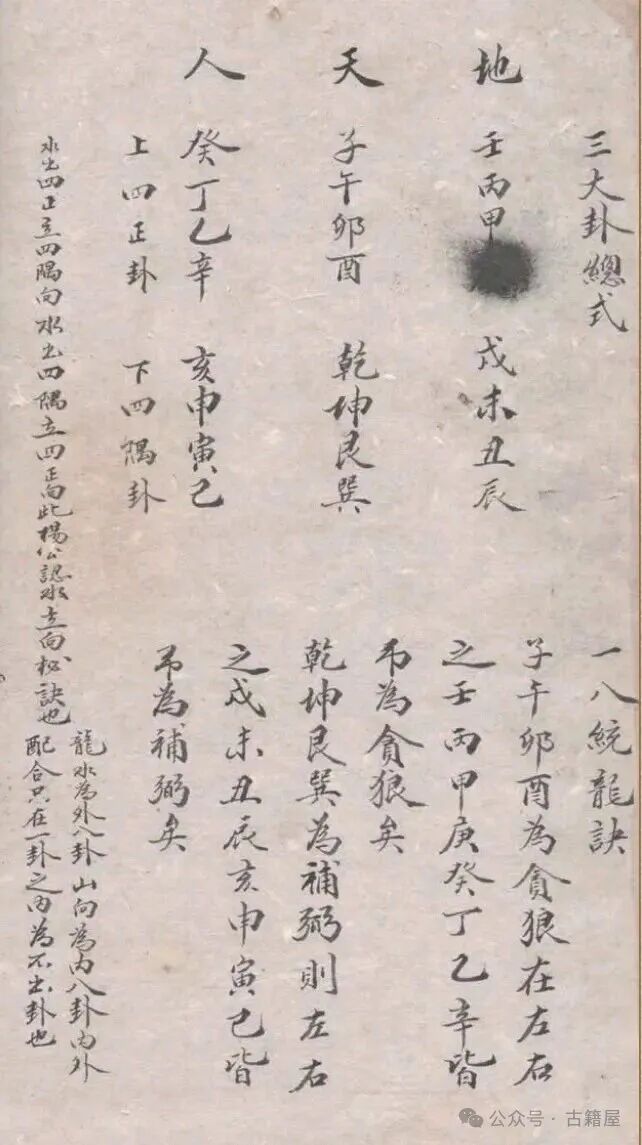 三大卦總式
地 壬丙甲 戌未丑辰
天 子午卯酉 乾坤艮巽
人 癸丁乙辛 亥申寅巳
上四正卦 下四隅卦
水出四正立四隅向水出四隅立四正向此楊公認水立向秘訣也
一八統龍訣
子午卯酉為貪狼在左右
之壬丙甲庚癸丁乙辛皆
為貪狼矣
乾坤艮巽為補弼則左右
之戌未丑辰亥申寅巳皆
為補弼矣
龍水為外八卦山向為內八卦內外
配合只在一卦之內為不出卦也
公众号·古籍屋